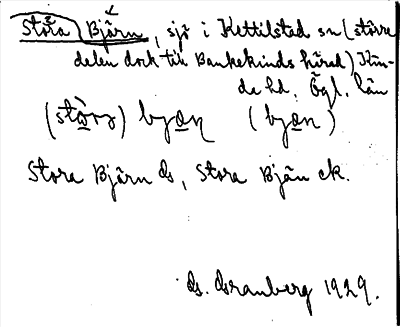 Stora Björn, sjö i Kettilstad sn (större
delen dock till Bankekinds härad) Kin-
da hd. Ögl. län
(stòrɔ) byøṇ (byøn)
Stora Björn ds, Stora Bjän ek.
G. Granberg 1929.